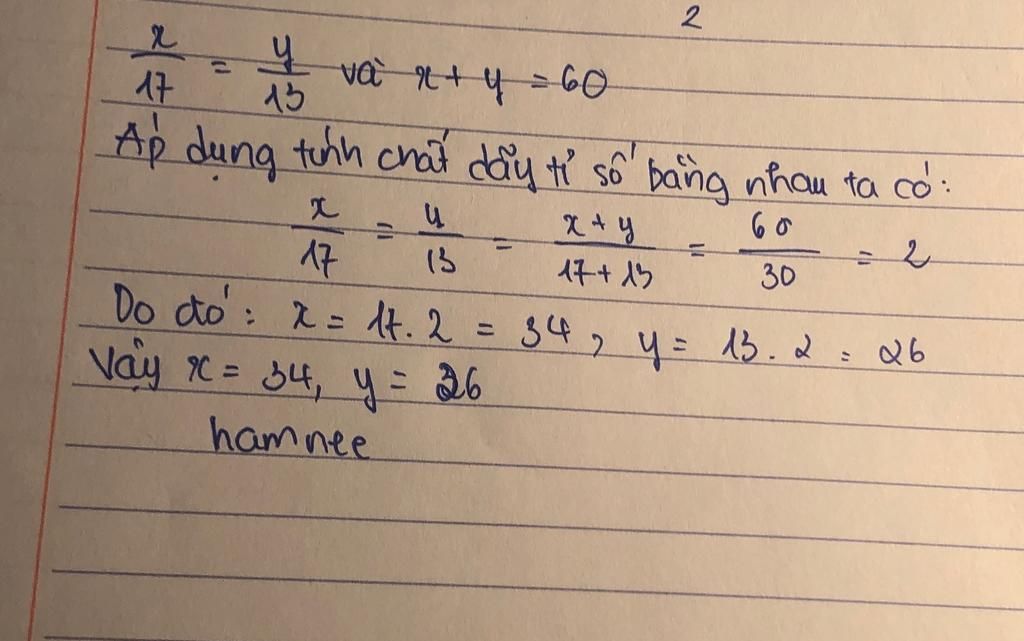 2
x/17 = y/13 và x + y = 60
Áp dụng tính chất dãy tỉ số bằng nhau ta có:
x/17 = y/13 = x + y/17 + 13 = 60/30 = 2
Do đó: x = 17. 2 = 34, y = 13. 2 = 26
Vậy x = 34, y = 26
hamnee